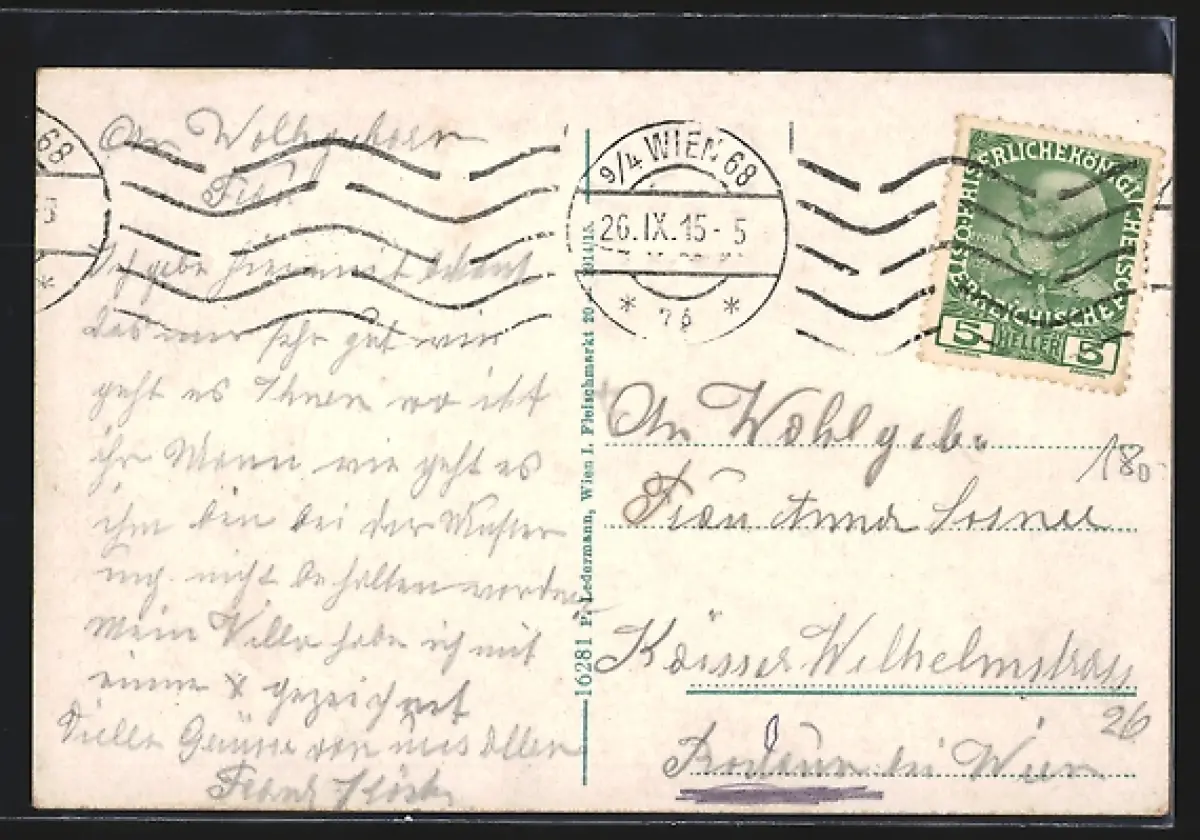 An Wohlgeborn
Frau
Ich gebe hiermit bekant
das mir sehr gut wie
geht es Ihnen wo ist
ihr Mann wie geht es
ihm bin bei der Muster
ung nicht behalten worden
Mein Villa habe ich mit
einen X gezeichnet
Viele Grüsse von uns Allen
Franz
68
9/4 WIEN 68
26.IX.15-5
* 76 *
KAISERLICHE KÖNIGLICHE ÖSTERREICHISCHE POST
5 HELLER 5
16281 P. Ledermann, Wien I. Fleischmarkt 20 1914/15.
An Wohlgeb.
Frau Anna
180
Kaisser Wilhelmstrass
26
Rodaun bei Wien